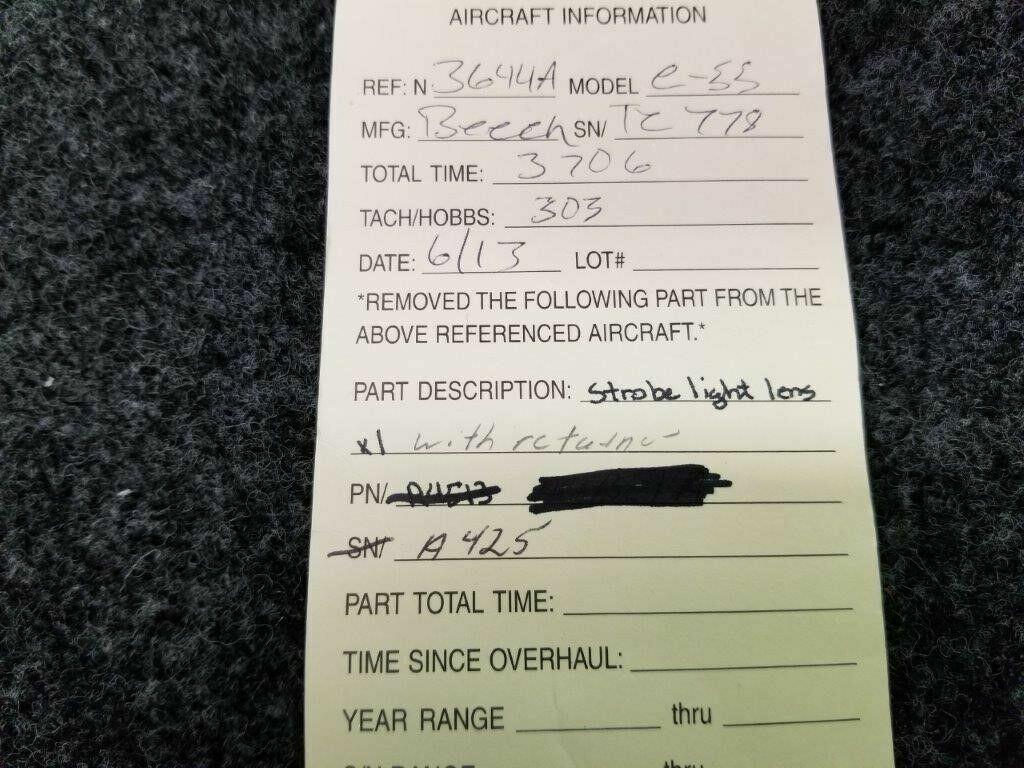 AIRCRAFT INFORMATION
REF: N 3644A MODEL e-55
MFG: Beech SN/ Tc 778
TOTAL TIME: 3706
TACH/HOBBS: 303
DATE: 6/13 LOT#
*REMOVED THE FOLLOWING PART FROM THE
ABOVE REFERENCED AIRCRAFT.*
PART DESCRIPTION: strobe light lens
x1 with retainer
PN/
SN/ A425
PART TOTAL TIME:
TIME SINCE OVERHAUL:
YEAR RANGE thru